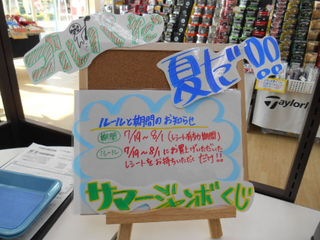 夏だ!!
ルールと期間のお知らせ
期間 7/19～8/1(レシート有効期間)
ルール 7/19～8/1にお買上げいただいた
レシートをお持ちいただくだけ!!
サマージャンボくじ
TaylorMade